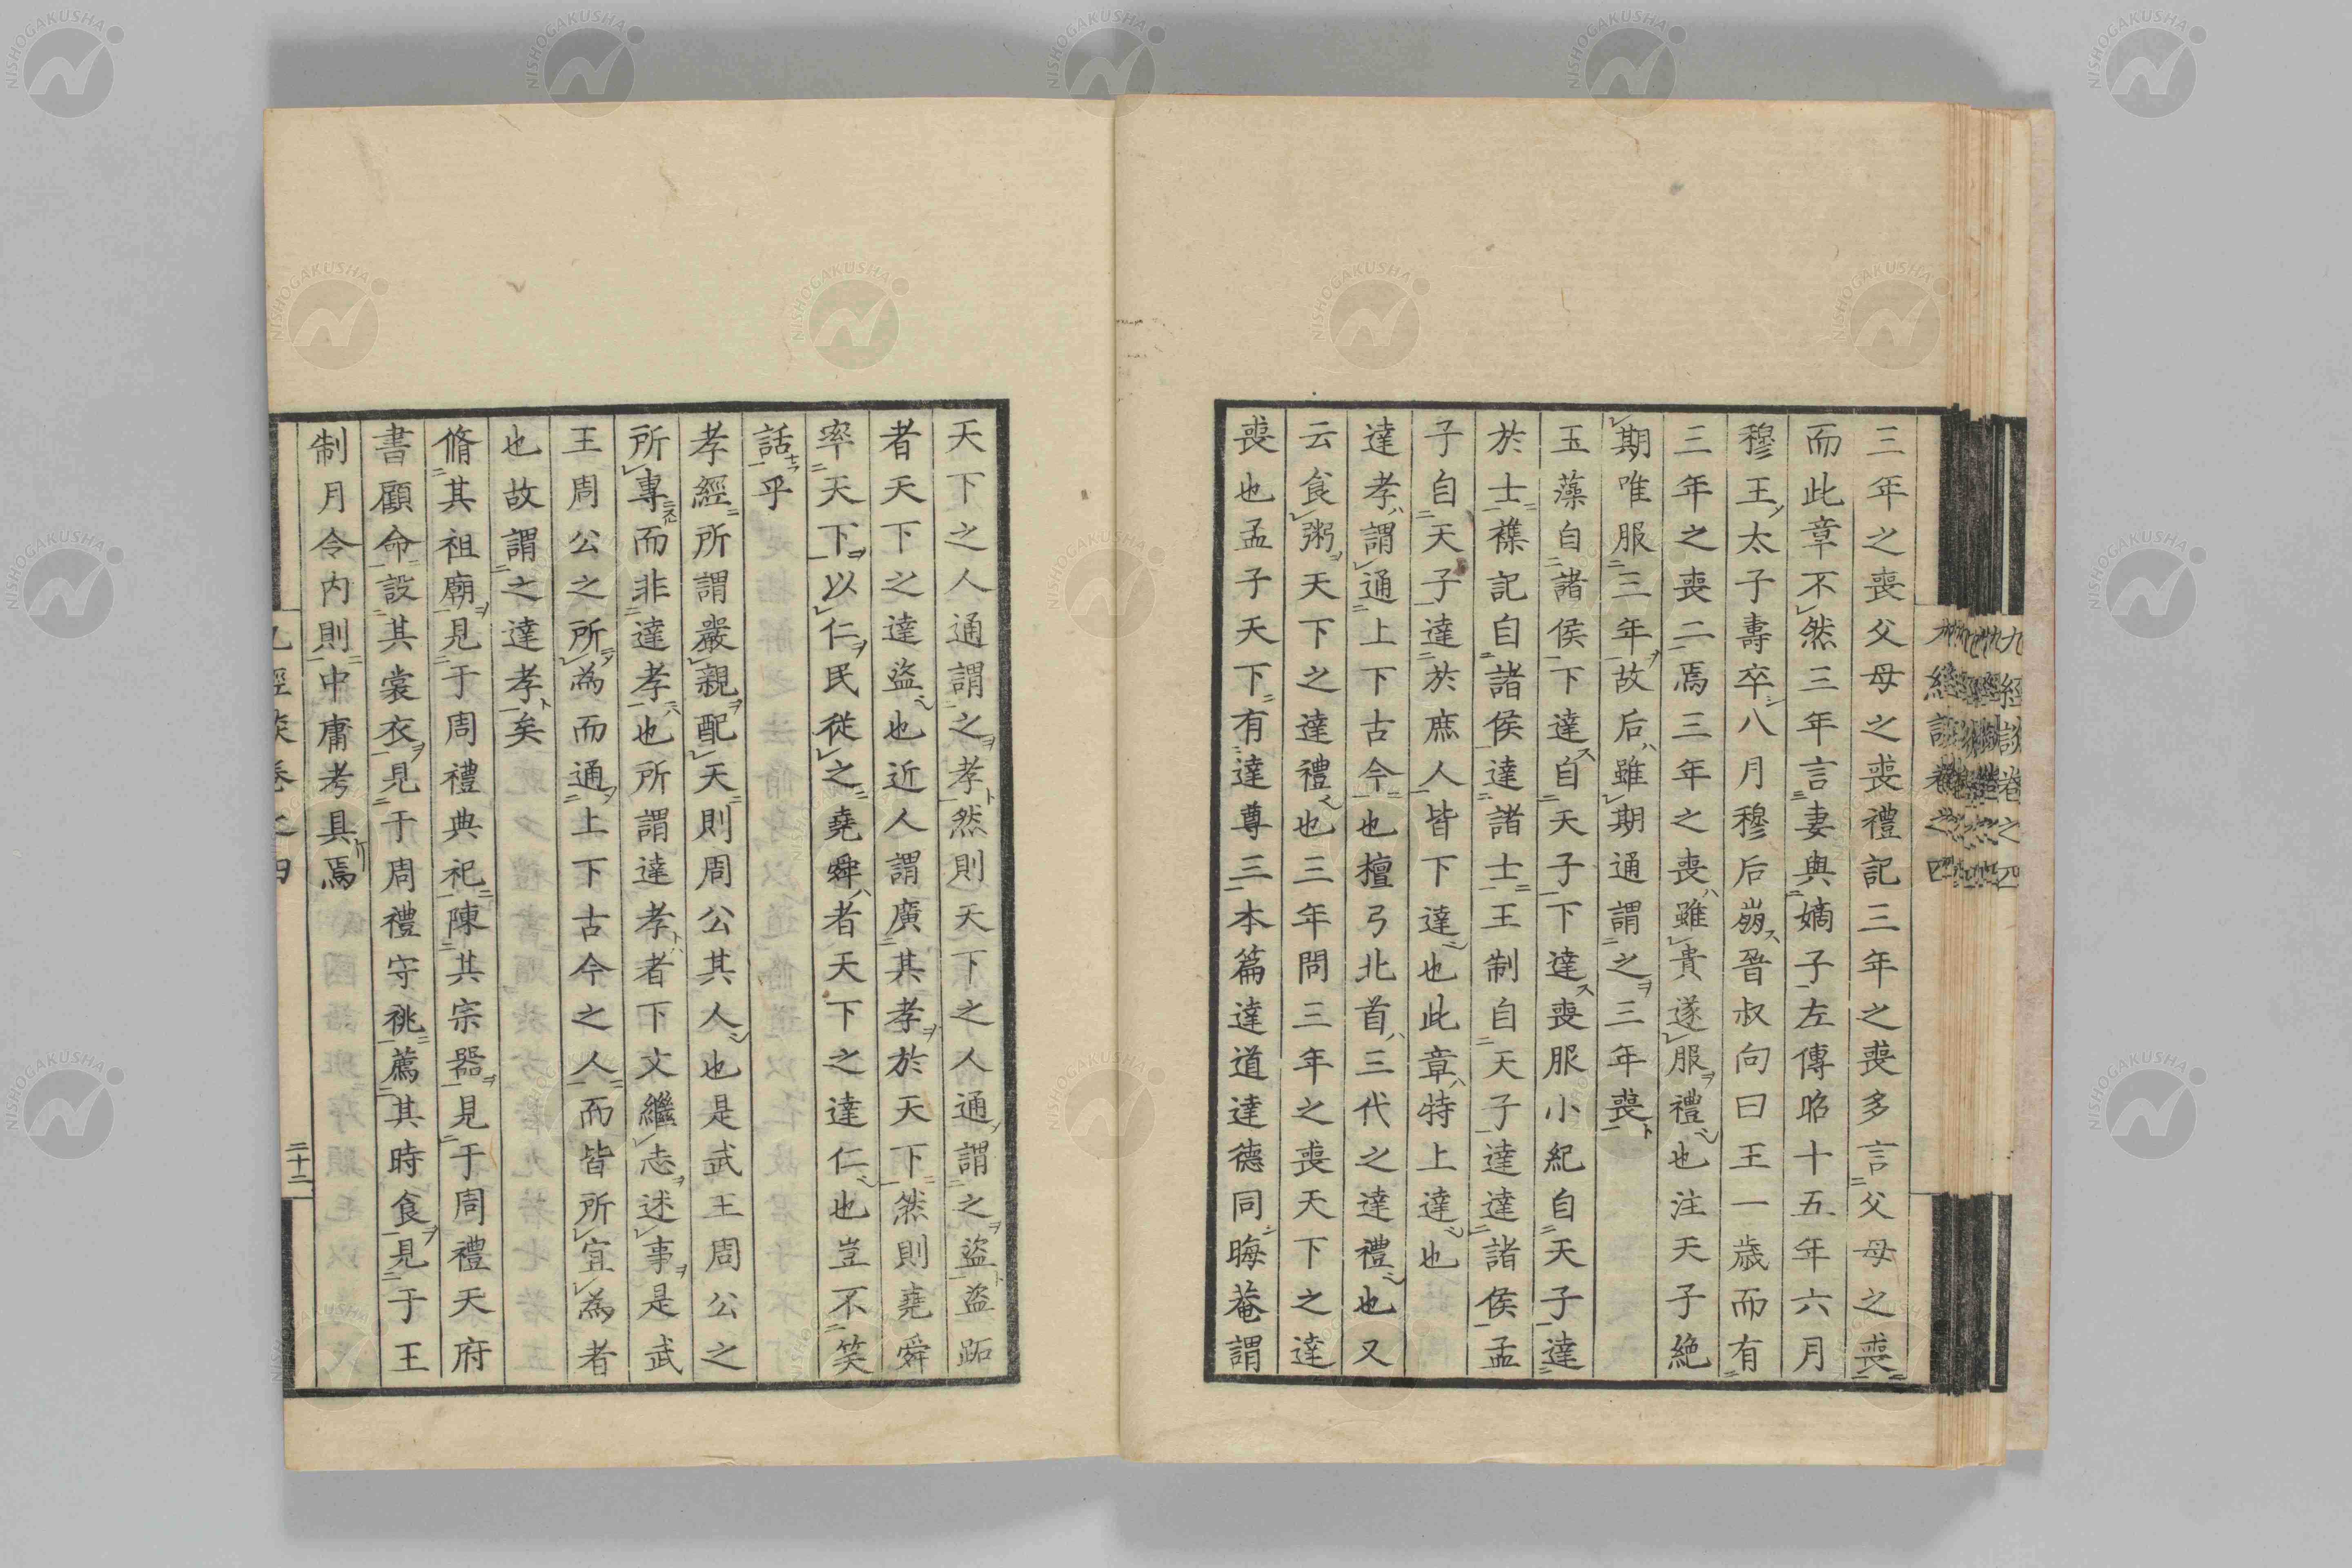 三年之喪父母之喪禮記三年之喪多言父母之喪
而此章不然三年言妻與嫡子左傳昭十五年六月
穆王太子壽卒八月穆后崩晉叔向曰王一歲而有
三年之喪二焉三年之喪雖貴遂服禮也注天子絶
期唯服三年故后雖期通謂之三年喪
玉藻自諸侯下達自天子下達喪服小紀自天子達
於士襍記自諸侯達諸士王制自天子達達諸侯孟
子自天子達於庶人皆下達也此章特上達也
達孝謂通上下古今也檀弓北首三代之達禮也又
云食粥天下之達禮也三年問三年之喪天下之達
喪也孟子天下有達尊三本篇達道達德同晦菴謂
天下之人通謂之孝然則天下之人通謂之盜盜跖
者天下之達盜也近人謂廣其孝於天下然則堯舜
率天下以仁民從之堯舜者天下之達仁也豈不笑
話乎
孝經所謂嚴親配天則周公其人也是武王周公之
所專而非達孝也所謂達孝者下文繼志述事是武
王周公之所為而通上下古今之人而皆所宜為者
也故謂之達孝矣
脩其祖廟見于周禮典祀陳其宗器見于周禮天府
書顧命設其裳衣見于周禮守祧薦其時食見于王
制月令内則中庸考具焉
九經談卷之四
二十二
九經談卷之四